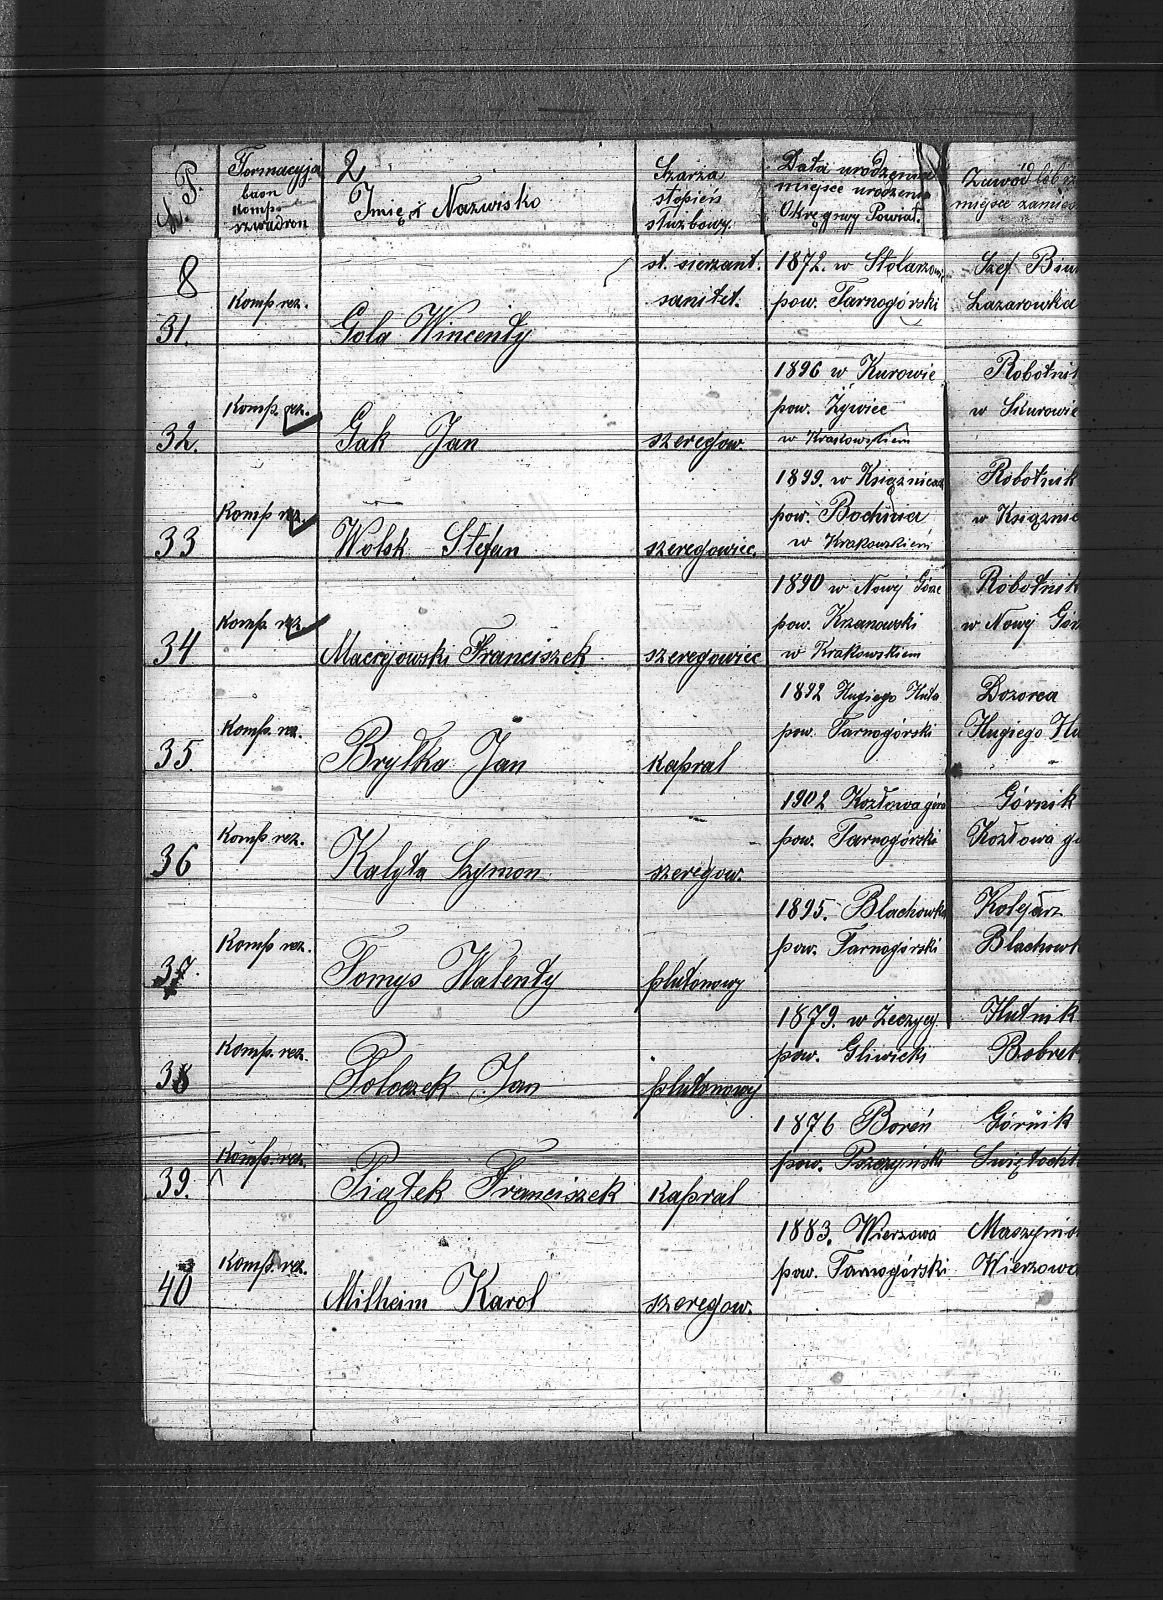 L. P.
Formacyja
baon
Komp
szwadron
2
Imię i Nazwisko
Szarża
stopień
służbowy.
Data urodzenia
miejsce urodzenia
Okręgowy Powiat.
Zawód lub
miejsce zamies
8
31.
Komp rez.
Gola Wincenty
st. sierżant.
sanitet.
1872. w Stolarzow
pow. Tarnogórski
Szef Biu
Łazarowka
32.
Komp. rez.
Gak Jan
szeregow.
1896 w Kurowie
pow. Żywiec
w Krakowskiem
Robotnik
w Skurowie
33
Komp rez.
Wolsk Stefan
szeregowiec.
1899. w Książnicac
pow. Bochnia
w Krakowskiem
Robotnik
w Książnic
34
Komp. rez.
Maciejowski Franciszek
szeregowiec
1890 w Nowy Górze
pow. Krzanowski
w Krakowskiem
Robotnik
w Nowy Gór
35.
Komp. rez.
Bryłka Jan
kapral
1892 Hugiego Huta
pow. Tarnogórski
Dozorca
Hugiego Hu
36
Komp. rez.
Kalyta Szymon
szeregow.
1902 Kozłowa góra
pow. Tarnogórski
Górnik
Kozłowa gó
37.
Komp rez.
Tomys Walenty
plutonowy
1895. Blachowka
pow. Tarnogórski
Kolejarz
Blachowk
38
Komp. rez.
Poloczek Jan
plutonowy
1879. w Zeczycy.
pow. Gliwicki
Hutnik
Bobrek
39.
Komp. rez.
Piątek Franciszek
Kapral
1876 Boreń
pow. Pszczyński
Górnik
Świętochł
40
Komp. rez.
Milheim Karol
szeregow.
1883. Wierzowa
pow. Tarnogórski
Maszynis
Wierzowa